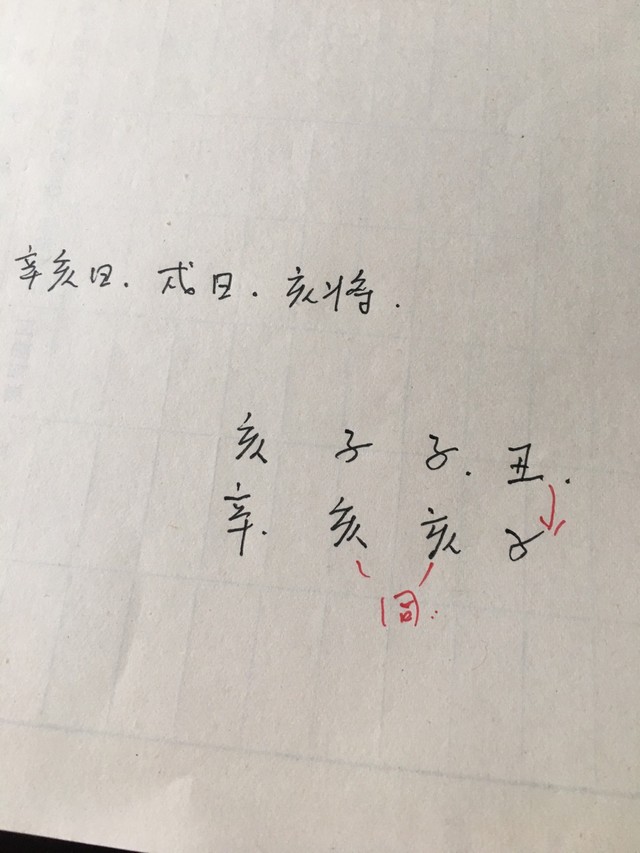 辛亥日.戌日.亥将.
亥 子 子.丑.
辛.亥 亥 子
同.